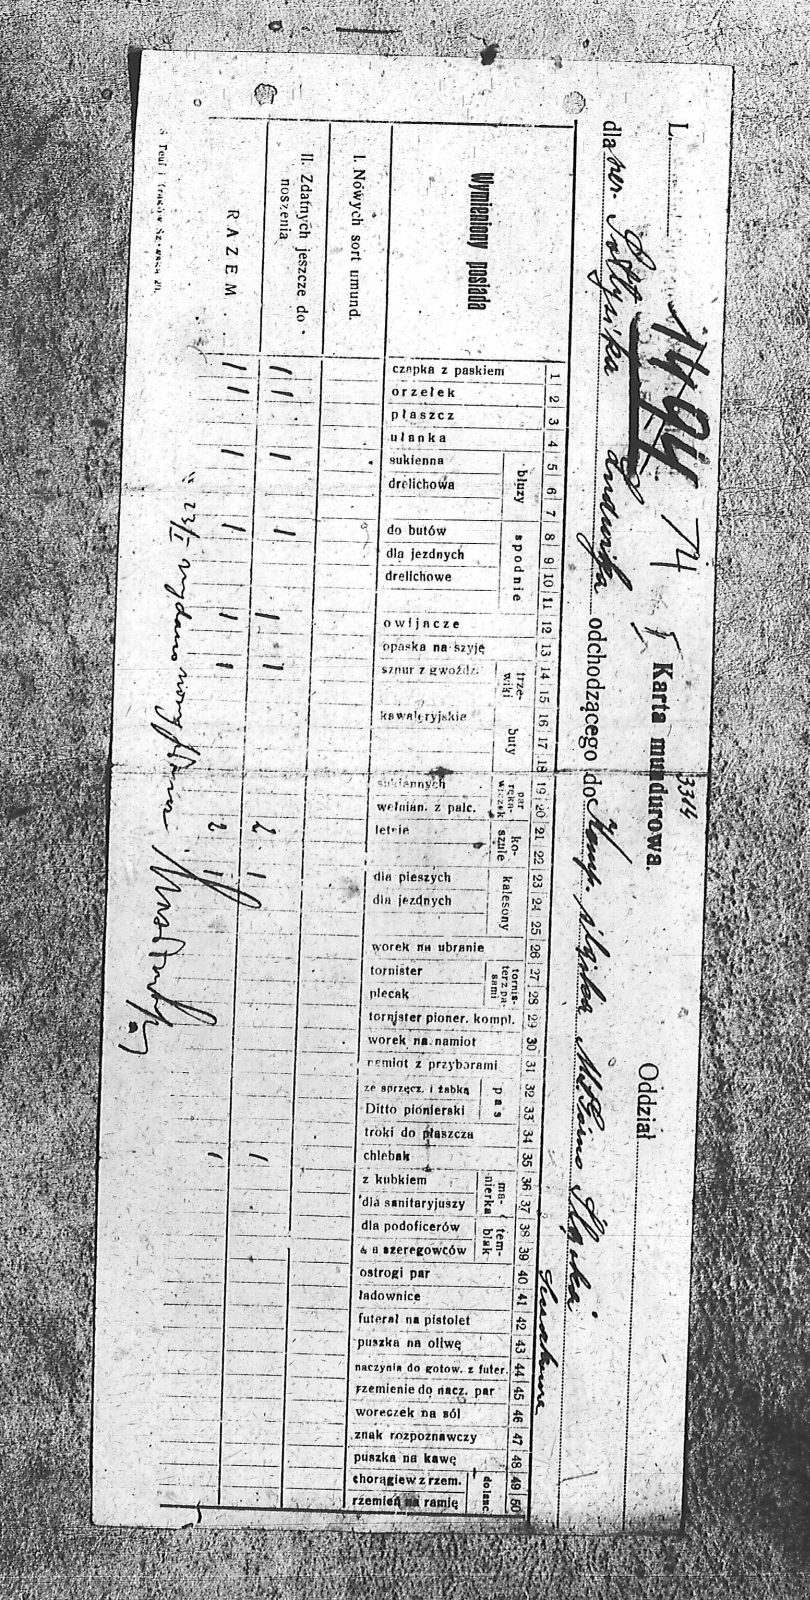 L.
1494 74
3314
Karta mundurowa.
Oddział
dla odchodzącego do
Wymieniony posiada
I. Nowych sort umund.
II. Zdatnych jeszcze do noszenia
RAZEM
1 czapka z paskiem
2 orzełek
3 płaszcz
4 ułanka
bluzy
5 sukienna
6 drelichowa
7
spodnie
8 do butów
9 dla jezdnych
10 drelichowe
11
12 owijacze
13 opaska na szyję
trze-wiki
14 sznur z gwoźdz.
15
buty
16 kawaleryjskie
17
18
par ręka-wiczek
19 sukiennych
20 wełnian. z palc.
ko-szule
21 letnie
22
kalesony
23 dla pieszych
24 dla jezdnych
25
26 worek na ubranie
tornis-terz.pa-sami
27 tornister
28 plecak
29 tornister pioner. kompl.
30 worek na namiot
31 namiot z przyborami
pas
32 ze sprzęcz. i żabką
33 Ditto pionierski
34 troki do płaszcza
35 chlebak
ma-nierka
36 z kubkiem
37 dla sanitaryjuszy
tem-blak
38 dla podoficerów
39 szeregowców
40 ostrogi par
41 ładownice
42 futerał na pistolet
43 puszka na oliwę
44 naczynia do gotow. z futer.
45 rzemienie do nacz. par
46 woreczek na sól
47 znak rozpoznawczy
48 puszka na kawę
do lanc.
49 chorągiew z rzem.
50 rzemień na ramię
1 1 1 1 1 1 2 1 1
1 1 1 1 1 1 2 1 1
23/I wydano